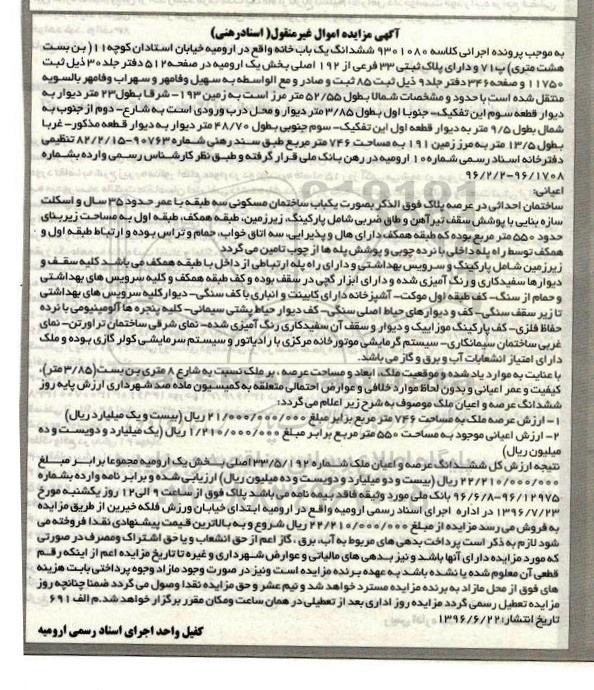 آگهی مزایده اموال غیرمنقول( اسنادرهنی)
به موجب پرونده اجرائی کلاسه ۹۳۰۱۰۸۰ ششدانگ یک باب خانه واقع در ارومیه خیابان استادان کوچه۱۱( بن بست
هشت متری) پ۷۱ و دارای پلاک ثبتی ۳۳ فرعی از ۱۹۲ اصلی بخش یک ارومیه در صفحه۵۱۲ دفتر جلد۳۰ ذیل ثبت
۱۱۷۵۰ و صفحه۳۴۶ دفتر جلد۹ ذیل ثبت ۸۵ ثبت و صادر و مع الواسطه به سهیل وفامهر و سهراب وفامهر بالسویه
منتقل شده است با حدود و مشخصات شمالا بطول ۵۲/۵۵ متر مرز است به زمین ۱۹۳- شرقا بطول۲۳ متر دیوار به
دیوار قطعه سوم این تفکیک- جنوبا اول بطول ۳/۸۵ متر دیوار و محل درب ورودی است به شارع- دوم از جنوب به
شمال بطول ۹/۵ متر به دیوار قطعه اول این تفکیک- سوم جنوبی بطول ۴۸/۷۰ متر دیوار به دیوار قطعه مذکور- غربا
بطول ۱۳/۵ متر به مرز زمین ۱۹۱ به مساحت ۷۴۶ متر مربع طبق سند رهنی شماره ۹۰۷۶۳-۸۲/۲/۱۵ تنظیمی
دفترخانه اسناد رسمی شماره ۱۰ ارومیه در رهن بانک ملی قرار گرفته و طبق نظر کارشناس رسمی وارده بشماره
۹۶/۱۷۰۸-۹۶/۲/۲
اعیانی:
ساختمان احداثی در عرصه پلاک فوق الذکر بصورت یکباب ساختمان مسکونی سه طبقه با عمر حدود ۳۵ سال و اسکلت
سازه بنایی با پوشش سقف تیرآهن و طاق ضربی شامل پارکینگ، زیرزمین، طبقه همکف، طبقه اول به مساحت زیربنای
حدود ۵۵۰ متر مربع بوده که طبقه همکف دارای هال و پذیرایی، سه اتاق خواب، حمام و تراس بوده و ارتباط طبقه اول و
همکف توسط راه پله داخلی با نرده چوبی و پوشش پله ها از چوب تامین می گردد
زیرزمین شامل پارکینگ و سرویس بهداشتی و دارای راه پله ارتباطی از داخل با طبقه همکف می باشد کلیه سقف و
دیوارها سفیدکاری و رنگ آمیزی شده و دارای ابزار گچی در سقف بوده و کف طبقه همکف و کلیه سرویس های بهداشتی
و حمام از سنگ- کف طبقه اول موکت- آشپزخانه دارای کابینت و انباری با کف سنگی- دیوار کلیه سرویس های بهداشتی
تا زیر سقف سنگی- کف و دیوارهای حیاط اصلی سنگی- کف دیوار حیاط پشتی سیمانی- کلیه پنجره ها آلومینیومی با نرده
حفاظ فلزی- کف پارکینگ موزاییک و دیوار و سقف آن سفیدکاری رنگ آمیزی شده- نمای شرقی ساختمان تراورتن- نمای
غربی ساختمان سیمانکاری- سیستم گرمایشی موتورخانه مرکزی با رادیاتور و سیستم سرمایشی کولر گازی بوده و ملک
دارای امتیاز انشعابات آب و برق و گاز می باشد.
با عنایت به موارد یاد شده و موقعیت ملک، ابعاد و مساحت عرصه، بر ملک نسبت به شارع ۸ متری بن بست(۳/۸۵ متر)،
کیفیت و عمر اعیانی و بدون لحاظ موارد خلافی و عوارض احتمالی متعلقه به کمیسیون ماده صد شهرداری ارزش پایه روز
ششدانگ عرصه و اعیان ملک موصوف به شرح زیر اعلام می گردد:
۱- ارزش عرصه ملک به مساحت ۷۴۶ متر مربع برابر مبلغ ۲۱/۰۰۰/۰۰۰/۰۰۰ ریال (بیست و یک میلیارد ریال)
۲- ارزش اعیانی موجود به مساحت ۵۵۰ متر مربع برابر مبلغ ۱/۲۱۰/۰۰۰/۰۰۰ ریال (یک میلیارد و دویست و ده
میلیون ریال)
نتیجه ارزش کل ششدانگ عرصه و اعیان ملک شماره ۳۳/۵/۱۹۲ اصلی بخش یک ارومیه مجموعا برابر مبلغ
۲۲/۲۱۰/۰۰۰/۰۰۰ ریال (بیست و دو میلیارد و دویست و ده میلیون ریال) ارزیابی شده و برابر نامه وارده بشماره
۹۶/۱۲۹۷۵-۹۶/۶/۸ بانک ملی مورد وثیقه فاقد بیمه نامه می باشد پلاک فوق از ساعت ۹ الی ۱۲ روز یکشنبه مورخ
۱۳۹۶/۷/۲۳ در اداره اجرای اسناد رسمی ارومیه واقع در ارومیه ابتدای خیابان ورزش فلکه خیرین از طریق مزایده
به فروش می رسد مزایده از مبلغ ۲۲/۲۱۰/۰۰۰/۰۰۰ ریال شروع و به بالاترین قیمت پیشنهادی نقدا فروخته می
شود لازم به ذکر است پرداخت بدهی های مربوط به آب، برق، گاز اعم از حق انشعاب و یا حق اشتراک ومصرف در صورتی
که مورد مزایده دارای آنها باشد و نیز بدهی های مالیاتی و عوارض شهرداری و غیره تا تاریخ مزایده اعم از اینکه رقم
قطعی آن معلوم شده یا نشده باشد به عهده برنده مزایده است ونیز در صورت وجود مازاد وجوه پرداختی بابت هزینه
های فوق از محل مازاد به برنده مزایده مسترد خواهد شد و نیم عشر و حق مزایده نقدا وصول می گردد ضمنا چنانچه روز
مزایده تعطیل رسمی گردد مزایده روز اداری بعد از تعطیلی در همان ساعت ومکان مقرر برگزار خواهد شد.م الف ۶۹۱
تاریخ انتشار: ۱۳۹۶/۶/۲۲
کفیل واحد اجرای اسناد رسمی ارومیه